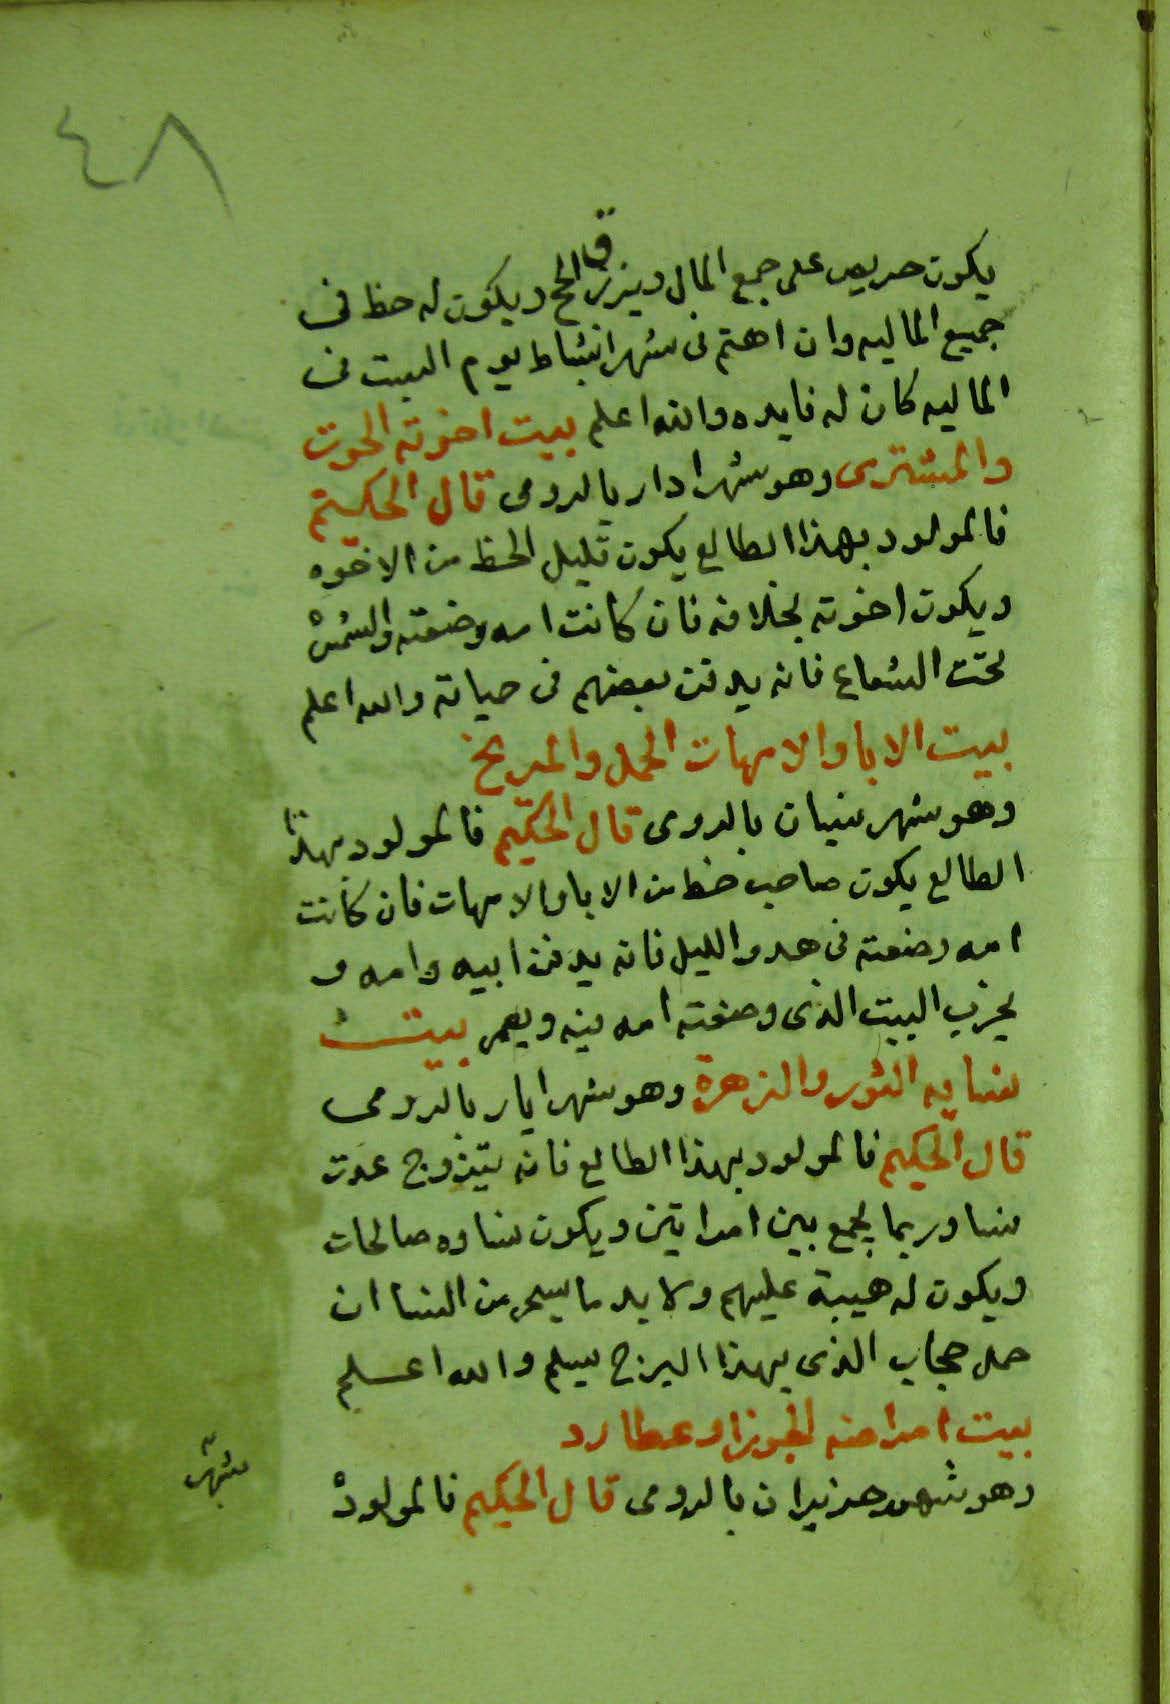 ٤٨
يكون حريص على جمع المال ويرزق الحج ويكون له حظ فى
جميع الماليه وان اهتم فى شهر اشباط يوم السبت فى
الماليه كان له فايده والله اعلم بيت اخوته الحوت
والمشترى وهو شهر ادار بالرومى قال الحكيم
فالمولود بهذا الطالع يكون قليل الحظ من الاخوه
ويكون اخوته بخلافه فان كانت امه وضعته والشمس
تحت الشعاع فانه يدفن بعضهم فى حياته والله اعلم
بيت الابا والامهات الحمل والمريخ
وهو شهر نيسان بالرومى قال الحكيم فالمولود بهذا
الطالع يكون صاحب حظ من الابا والامهات فان كانت
امه وضعته فى هدو الليل فانه يدفن ابيه وامه و
يخرب البيت الذى وضعته امه فيه ويعمر بيت
نسايه الثور والزهرة وهو شهر ايار بالرومى
قال الحكيم فالمولود بهذا الطالع فانه يتزوج عدت
نسا وربما يجمع بين امراتين ويكون نساوه صالحات
ويكون له هيبة عليهم ولا بد ما يسحر من النسا ان
حمل حجاب الذى بهذا البرج يسلم والله اعلم
بيت امراضه الجوزا وعطارد
وهو شهر حزيران بالرومى قال الحكيم فالمولود